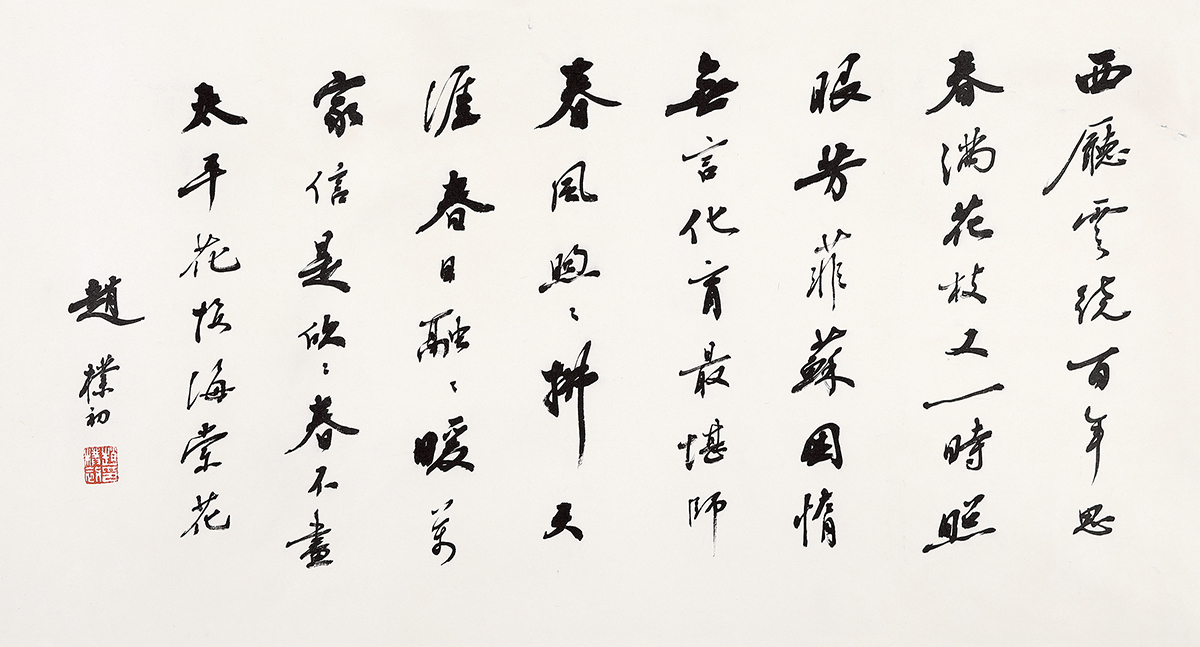 西廳雲繞百年思
春滿花枝又一時照
眼芳菲蘇困惰
無言化育最堪師
春風煦〻拂天
涯春日融〻暖萬
家信是欣〻春不盡
太平花接海棠花
趙樸初